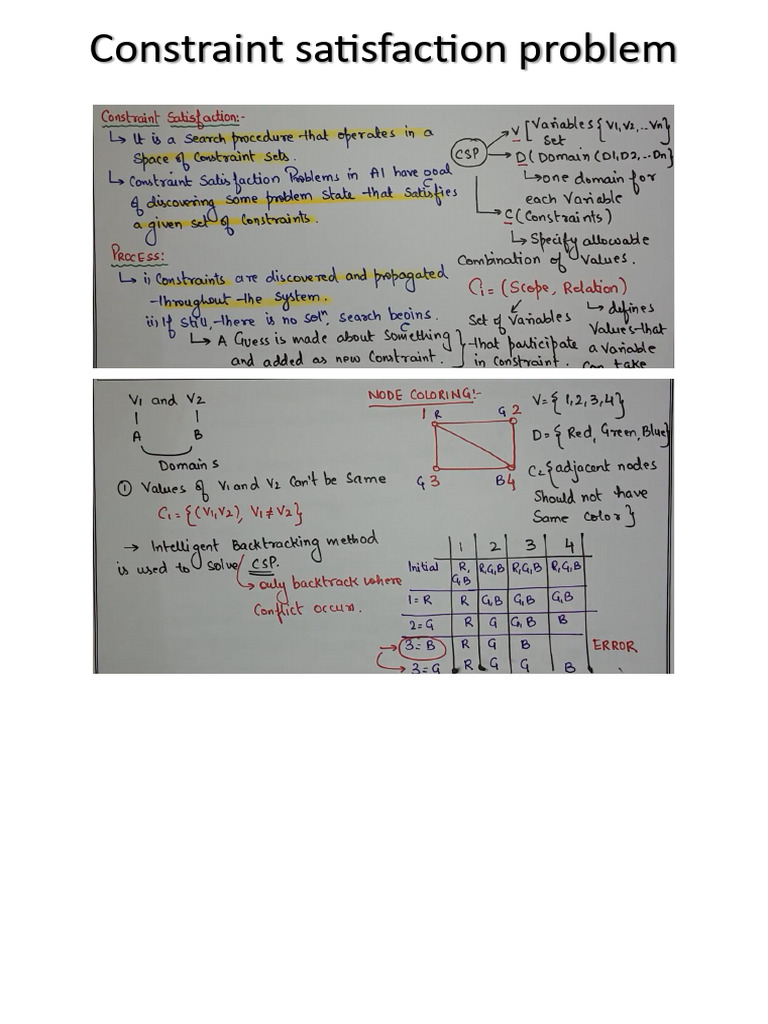 Constraint satisfaction problem
Constraint Satisfaction:-
↳ It is a Search procedure that operates in a
Space of Constraint Sets.
↳ Constraint Satisfaction Problems in AI have Goal
of discovering some problem State that Satisfies
a given set of Constraints.
PROCESS:
↳ i) Constraints are discovered and propagated
throughout the System.
ii) If Still, there is no solⁿ, search begins.
↳ A Guess is made about Something
and added as new Constraint.
CSP
V [Variables {V1, V2, ..Vn}
Set
D (Domain (D1, D2, ..Dn}
↳ one domain for
each Variable
C (Constraints)
↳ Specify allowable
Combination of Values.
Ci = (Scope, Relation)
Set of Variables
that participate
in Constraint.
↳ defines
Values that
a Variable
Can take
V1 and V2
A B
Domains
① Values of V1 and V2 Can't be Same
C1 = {(V1, V2), V1 ≠ V2}
→ Intelligent Backtracking method
is used to Solve CSP.
→ only backtrack where
Conflict occurs.
NODE COLORING:-
1 R G 2
G 3 B 4
V = {1,2,3,4}
D = {Red, Green, Blue}
C = {adjacent nodes
Should not have
Same Color}
1 2 3 4
Initial R,G,B R,G,B R,G,B R,G,B
1=R R G,B G,B G,B
2=G R G G,B B
3=B R G B ERROR
3=G R G G B